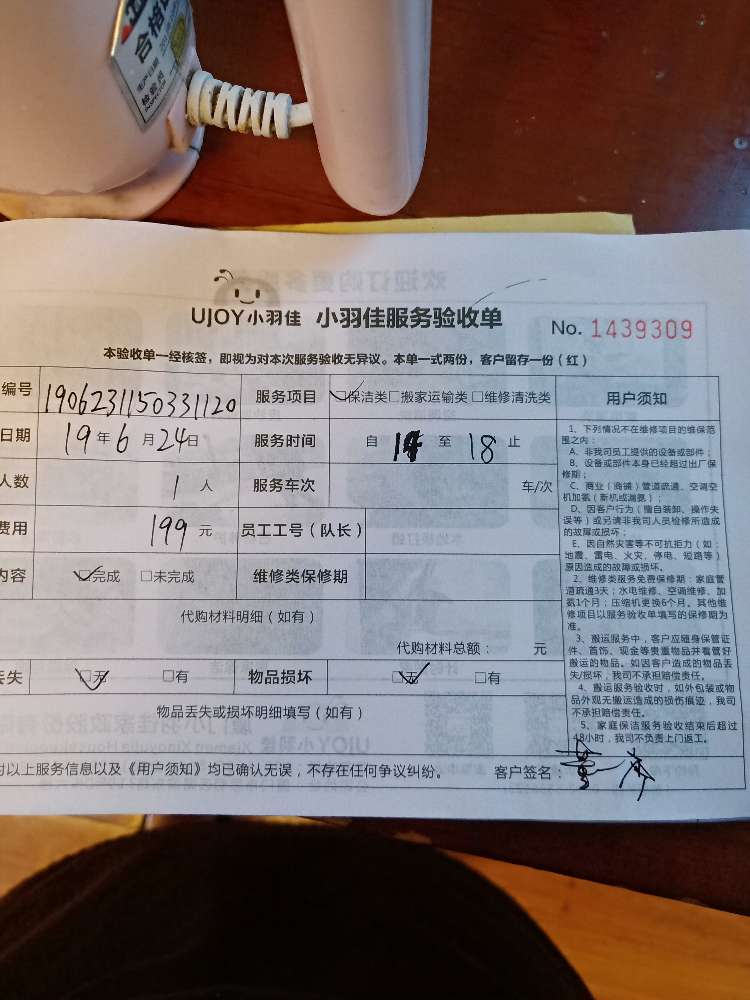 合格
生产日期
检验员
INSPECTOR
UJOY小羽佳 小羽佳服务验收单
No. 1439309
本验收单一经核签，即视为对本次服务验收无异议。本单一式两份，客户留存一份（红）
编号 1906231150331120 服务项目 ☑保洁类□搬家运输类□维修清洗类 用户须知
日期 19年6月24日 服务时间 自 14 至 18 止
人数 1人 服务车次 车/次
费用 199元 员工工号（队长）
内容 ☑完成 □未完成 维修类保修期
代购材料明细（如有）
代购材料总额： 元
丢失 ☑无 □有 物品损坏 ☑无 □有
物品丢失或损坏明细填写（如有）
1、下列情况不在维修项目的维保范
围之内：
A、非我司员工提供的设备或部件；
B、设备或部件本身已经超过出厂保
修期；
C、商业（商铺）管道疏通、空调空
机加氨（新机或漏氨）；
D、因客户行为（擅自装卸、操作失
误等）或另请非我司人员检修所造成
的故障或损坏；
E、因自然灾害等不可抗拒力（如：
地震、雷电、火灾、停电、短路等）
原因造成的故障或损坏。
2、维修类服务免费保修期：家庭管
道疏通3天；水电维修、空调维修、加
氨1个月；压缩机更换6个月。其他维
修项目以服务验收单填写的保修期为
准。
3、搬运服务中，客户应随身保管证
件、首饰、现金等贵重物品并看管好
搬运的物品。如因客户造成的物品丢
失/损坏，我司不承担赔偿责任。
4、搬运服务验收时，如外包装或物
品外观无搬运造成的损伤痕迹，我司
不承担赔偿责任。
5、家庭保洁服务验收结束后超过
48小时，我司不负责上门返工。
以上服务信息以及《用户须知》均已确认无误，不存在任何争议纠纷。 客户签名：